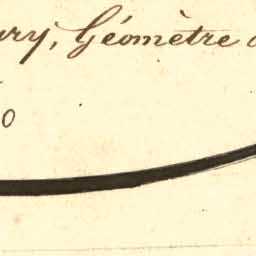 ury, Géomètre
0